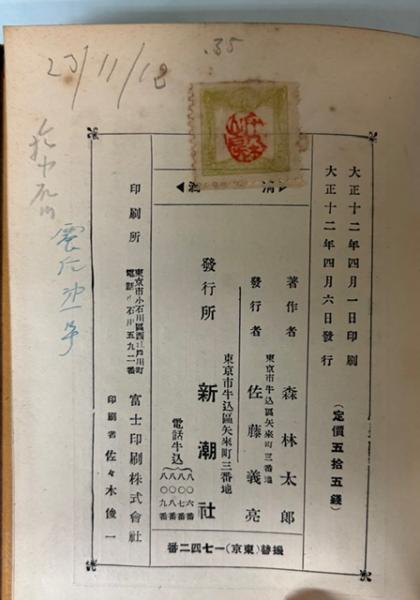 23/11/18
.35
大正十二年四月一日印刷
大正十二年四月六日發行
(定價五拾五錢)
著作者 森林太郎
東京市牛込區矢來町三番地
發行者 佐藤義亮
東京市牛込區矢來町三番地
發行所 新潮社
電話牛込
八〇六番
八〇七番
八〇八番
八〇九番
東京市小石川區西江戶川町
電話小石川五九二番
印刷所 富士印刷株式會社
印刷者 佐々木俊一
振替(東京)一七四二番